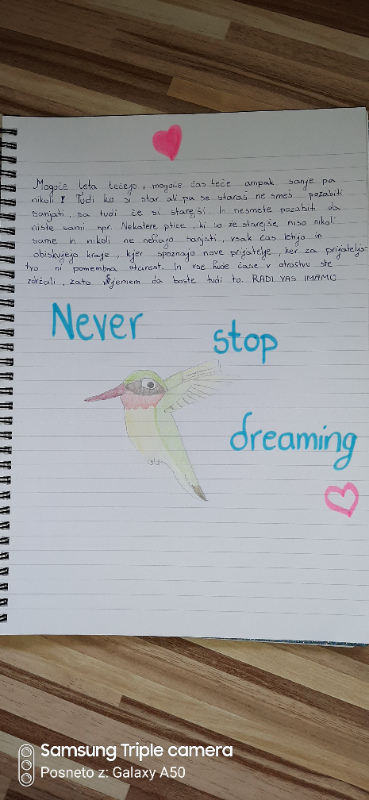 Mogoče leta tečejo, mogoče čas teče ampak sanje pa
nikoli! Tudi ko si star ali pa se staraš ne smeš pozabiti
sanjati, sa tudi če si starejši. In nesmete pozabit, da
niste sami npr. Nekatere ptice, ki so že starejše niso nikoli
same in nikoli ne nehajo sanjati, vsak čas letijo in
obiskujejo kraje, kjer spoznajo nove prijatelje, ker za prijateljs-
tvo ni pomembna starost. In vse hude čase v otroštvu ste
zdržali, zato verjamem da boste tudi to. RADI VAS IMAMO
Never
stop
dreaming
Samsung Triple camera
Posneto z: Galaxy A50